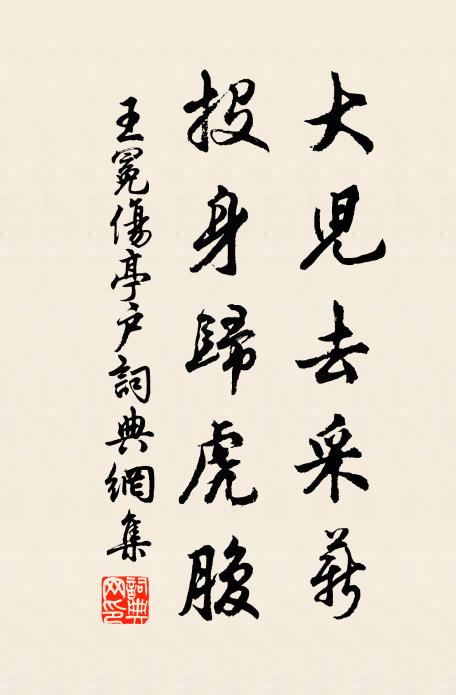 大兒去采薪
投身歸虎腹
王冕傷亭户詞典網集
詞典網印